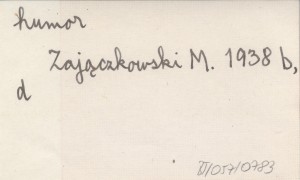 humor
Zajączkowski M. 1938 b,
d
/057/0783